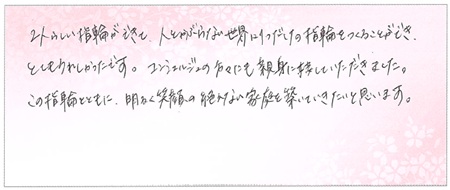 2人らしい指輪ができて、人とかぶらない世界に1つだけの指輪をつくることができ、
とてもうれしかったです。コンシェルジュの方々にも親身に接していただきました。
この指輪とともに、明るく笑顔の絶えない家庭を築いていきたいと思います。